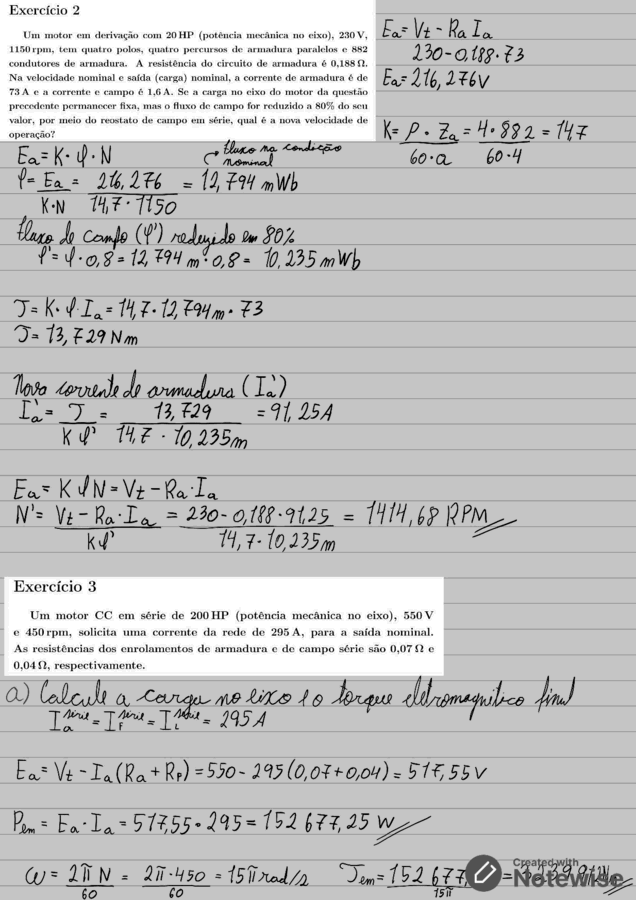 Exercício 2
Um motor em derivação com 20 HP (potência mecânica no eixo), 230 V,
1150 rpm, tem quatro polos, quatro percursos de armadura paralelos e 882
condutores de armadura. A resistência do circuito de armadura é 0,188 Ω.
Na velocidade nominal e saída (carga) nominal, a corrente de armadura é de
73 A e a corrente e campo é 1,6 A. Se a carga no eixo do motor da questão
precedente permanecer fixa, mas o fluxo de campo for reduzido a 80% do seu
valor, por meio do reostato de campo em série, qual é a nova velocidade de
operação?
Ea = Vt - Ra Ia
230 - 0,188 · 73
Ea = 216,276 V
K = P · Za = 4 · 882 = 14,7
60 · a 60 · 4
Ea = K · φ · N
fluxo na condição
nominal
φ = Ea = 216,276 = 12,794 mWb
K·N 14,7 · 1150
fluxo de campo (φ') reduzido em 80%
φ' = φ · 0,8 = 12,794 m · 0,8 = 10,235 mWb
τ = K · φ · Ia = 14,7 · 12,794 m · 73
τ = 13,729 Nm
Nova corrente de armadura (Ia')
Ia' = τ = 13,729 = 91,25 A
K φ' 14,7 · 10,235 m
Ea = K φ N = Vt - Ra · Ia
N' = Vt - Ra · Ia = 230 - 0,188 · 91,25 = 1414,68 RPM
K φ' 14,7 · 10,235 m
Exercício 3
Um motor CC em série de 200 HP (potência mecânica no eixo), 550 V
e 450 rpm, solicita uma corrente da rede de 295 A, para a saída nominal.
As resistências dos enrolamentos de armadura e de campo série são 0,07 Ω e
0,04 Ω, respectivamente.
a) Calcule a carga no eixo e o torque eletromagnético final
Ia série = If série = IL série = 295 A
Ea = Vt - Ia (Ra + RF) = 550 - 295 (0,07 + 0,04) = 517,55 V
Pem = Ea · Ia = 517,55 · 295 = 152 677,25 W
ω = 2π N = 2π · 450 = 15π rad/s τem = 152 677,
60 60 15π
Created with
Notewise